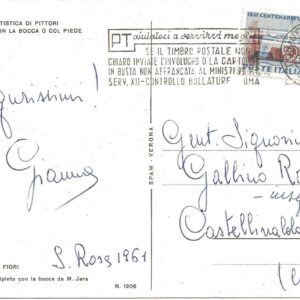 TISTICA DI PITTORI
N LA BOCCA O COL PIEDE
PT aiutateci a servirvi meglio
SE IL TIMBRO POSTALE NON
CHIARO INVIATE L'INVOLUCRO O LA CARTO
IN BUSTA NON AFFRANCATA AL MINISTER
SERV. XII-CONTROLLO BOLLATURE OMA
1861 CENTENARIO
STE ITALIA
gurissimi!
Gianna
S. Rosa 1961
FIORI
ipinto con la bocca da M. Jars
N. 1206
SPAM - VERONA
Gent. Signorin
Gallino Ro
inse
Castellinaldo